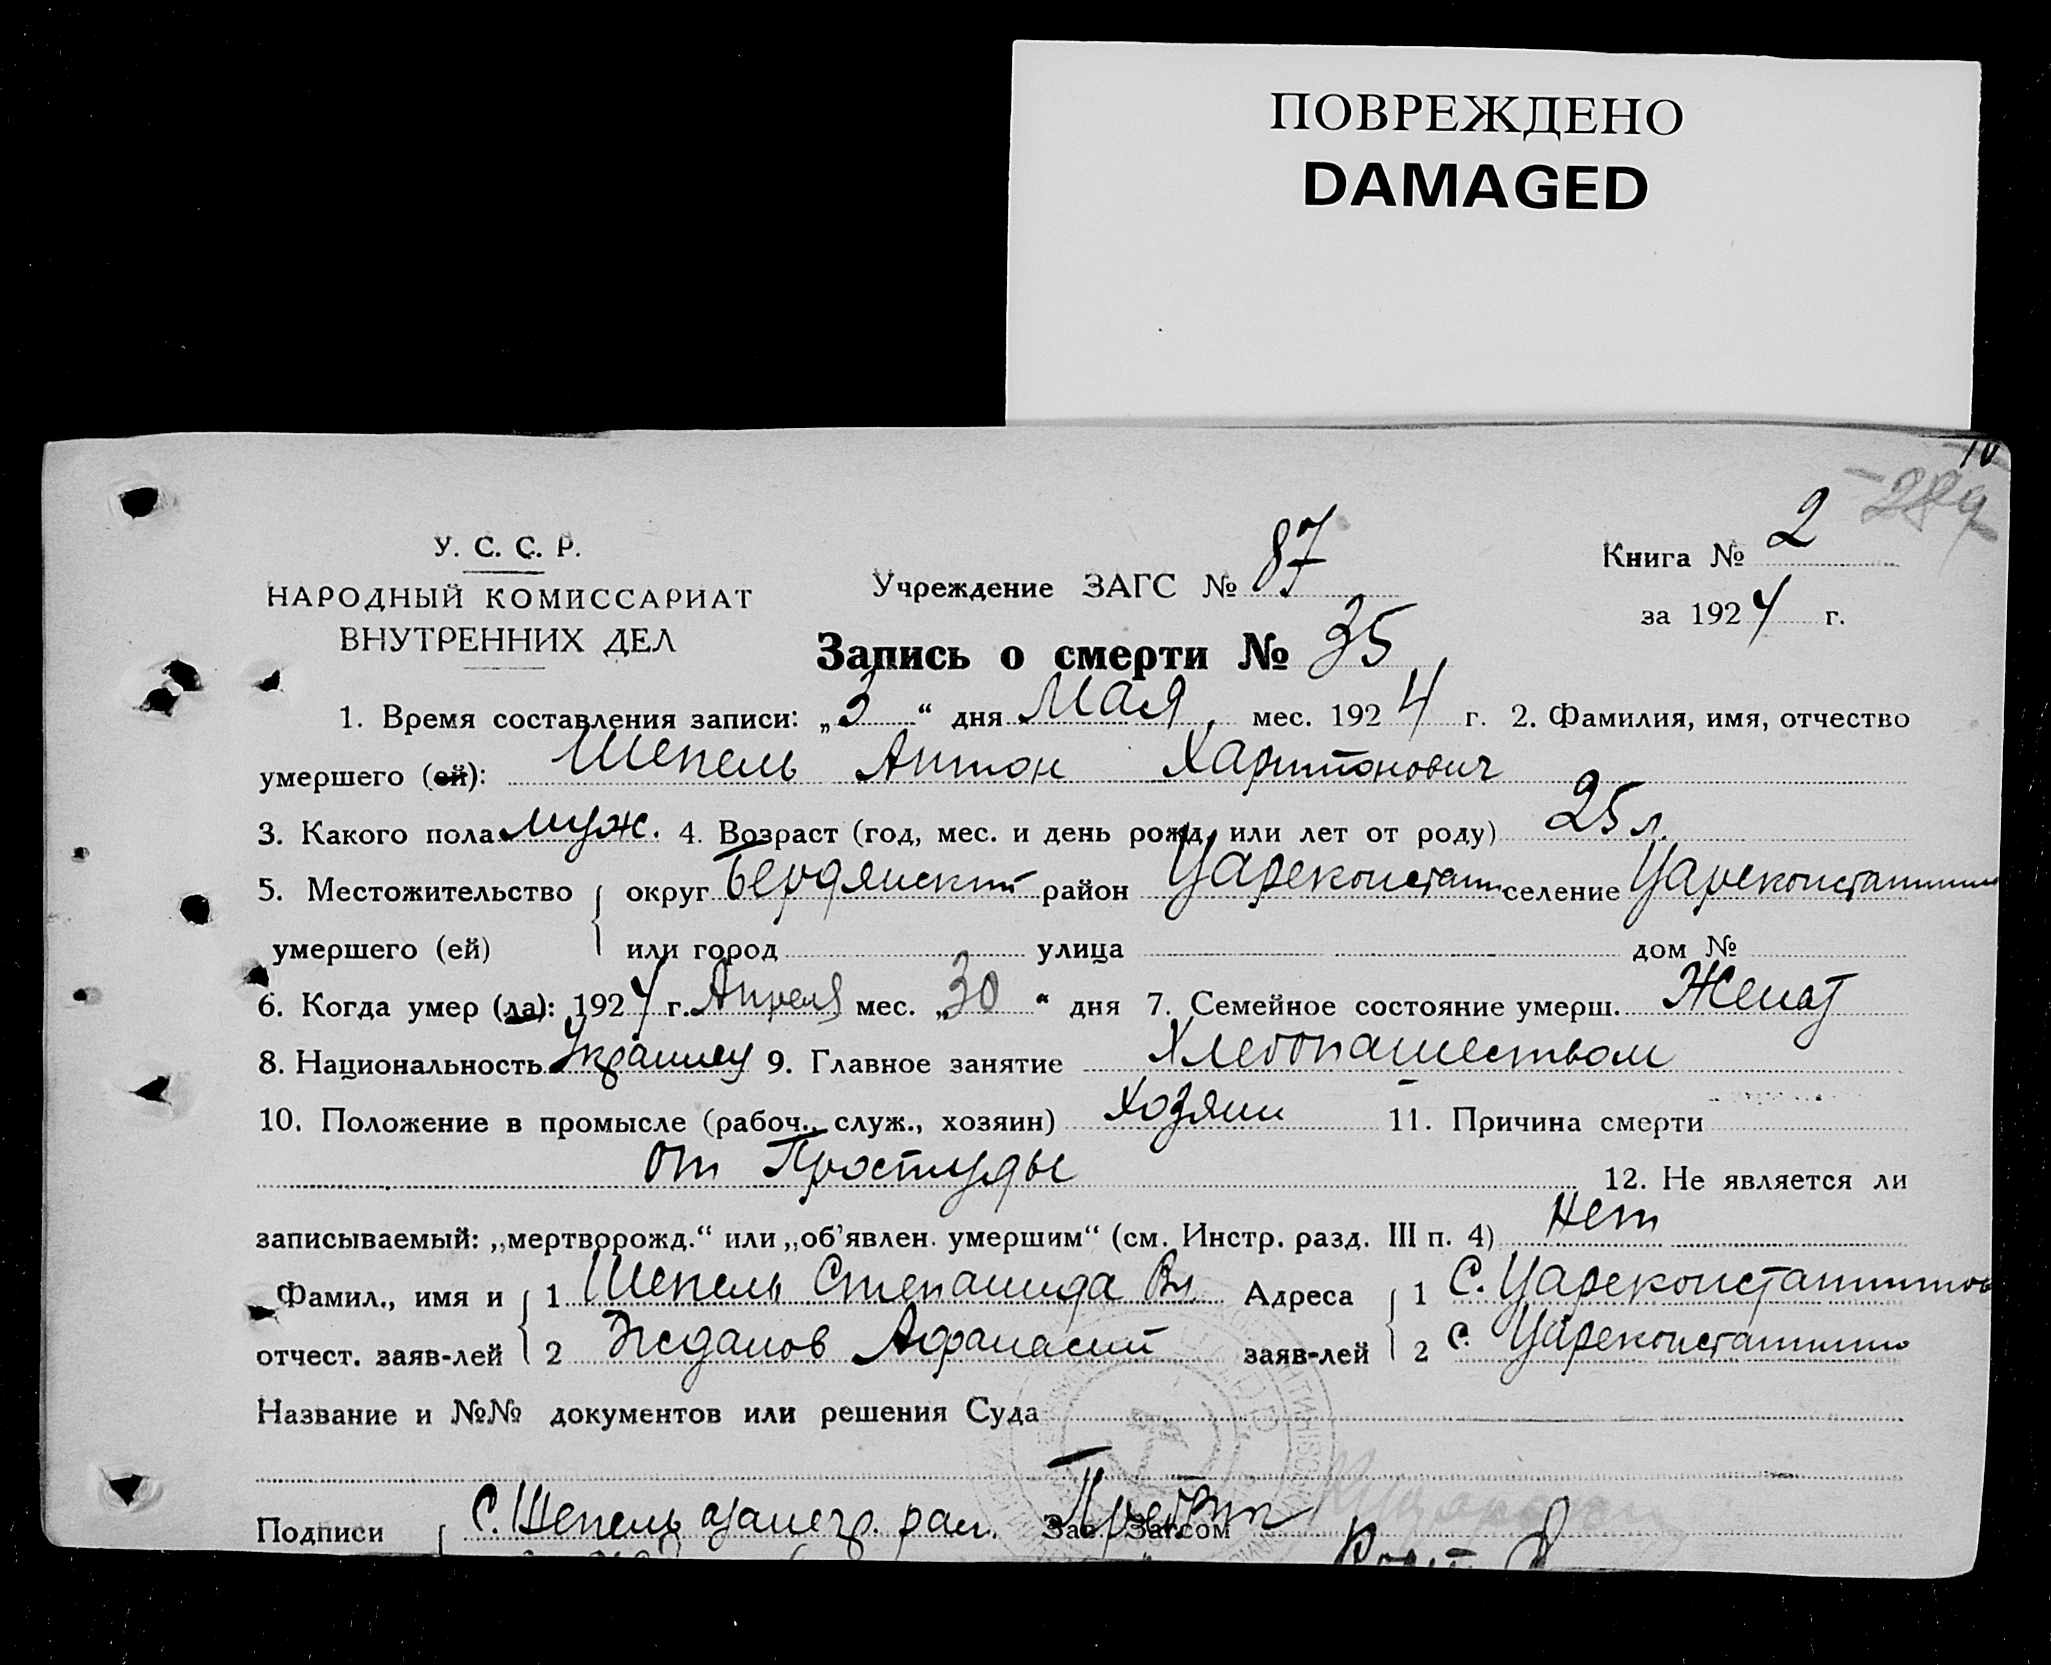 ПОВРЕЖДЕНО
DAMAGED
У. С. С. Р.
НАРОДНЫЙ КОМИССАРИАТ
ВНУТРЕННИХ ДЕЛ
Учреждение ЗАГС № 87
Книга № 2
за 1924 г.
Запись о смерти № 35
1. Время составления записи: „3“ дня Мая мес. 1924 г. 2. Фамилия, имя, отчество
умершего (ей): Шепель Антон Харитонович
3. Какого пола муж. 4. Возраст (год, мес. и день рожд. или лет от роду) 25 л.
5. Местожительство округ Бердянский район Цареконстант селение Цареконстантин
умершего (ей) или город улица дом №
6. Когда умер (ла): 1924 г. Апреля мес. „30“ дня 7. Семейное состояние умерш. Женат
8. Национальность Украинец 9. Главное занятие Хлебопашеством
10. Положение в промысле (рабоч., служ., хозяин) Хозяин 11. Причина смерти
от Простуды 12. Не является ли
записываемый: „мертворожд.“ или „об’явлен. умершим“ (см. Инстр. разд. III п. 4) Нет
Фамил., имя и 1 Шепель Степанида Вл. Адреса 1 С. Цареконстантинов
отчест. заяв-лей 2 Жданов Афанасий заяв-лей 2 С. Цареконстантин
Название и №№ документов или решения Суда
Подписи С. Шепель Зав. Загсом